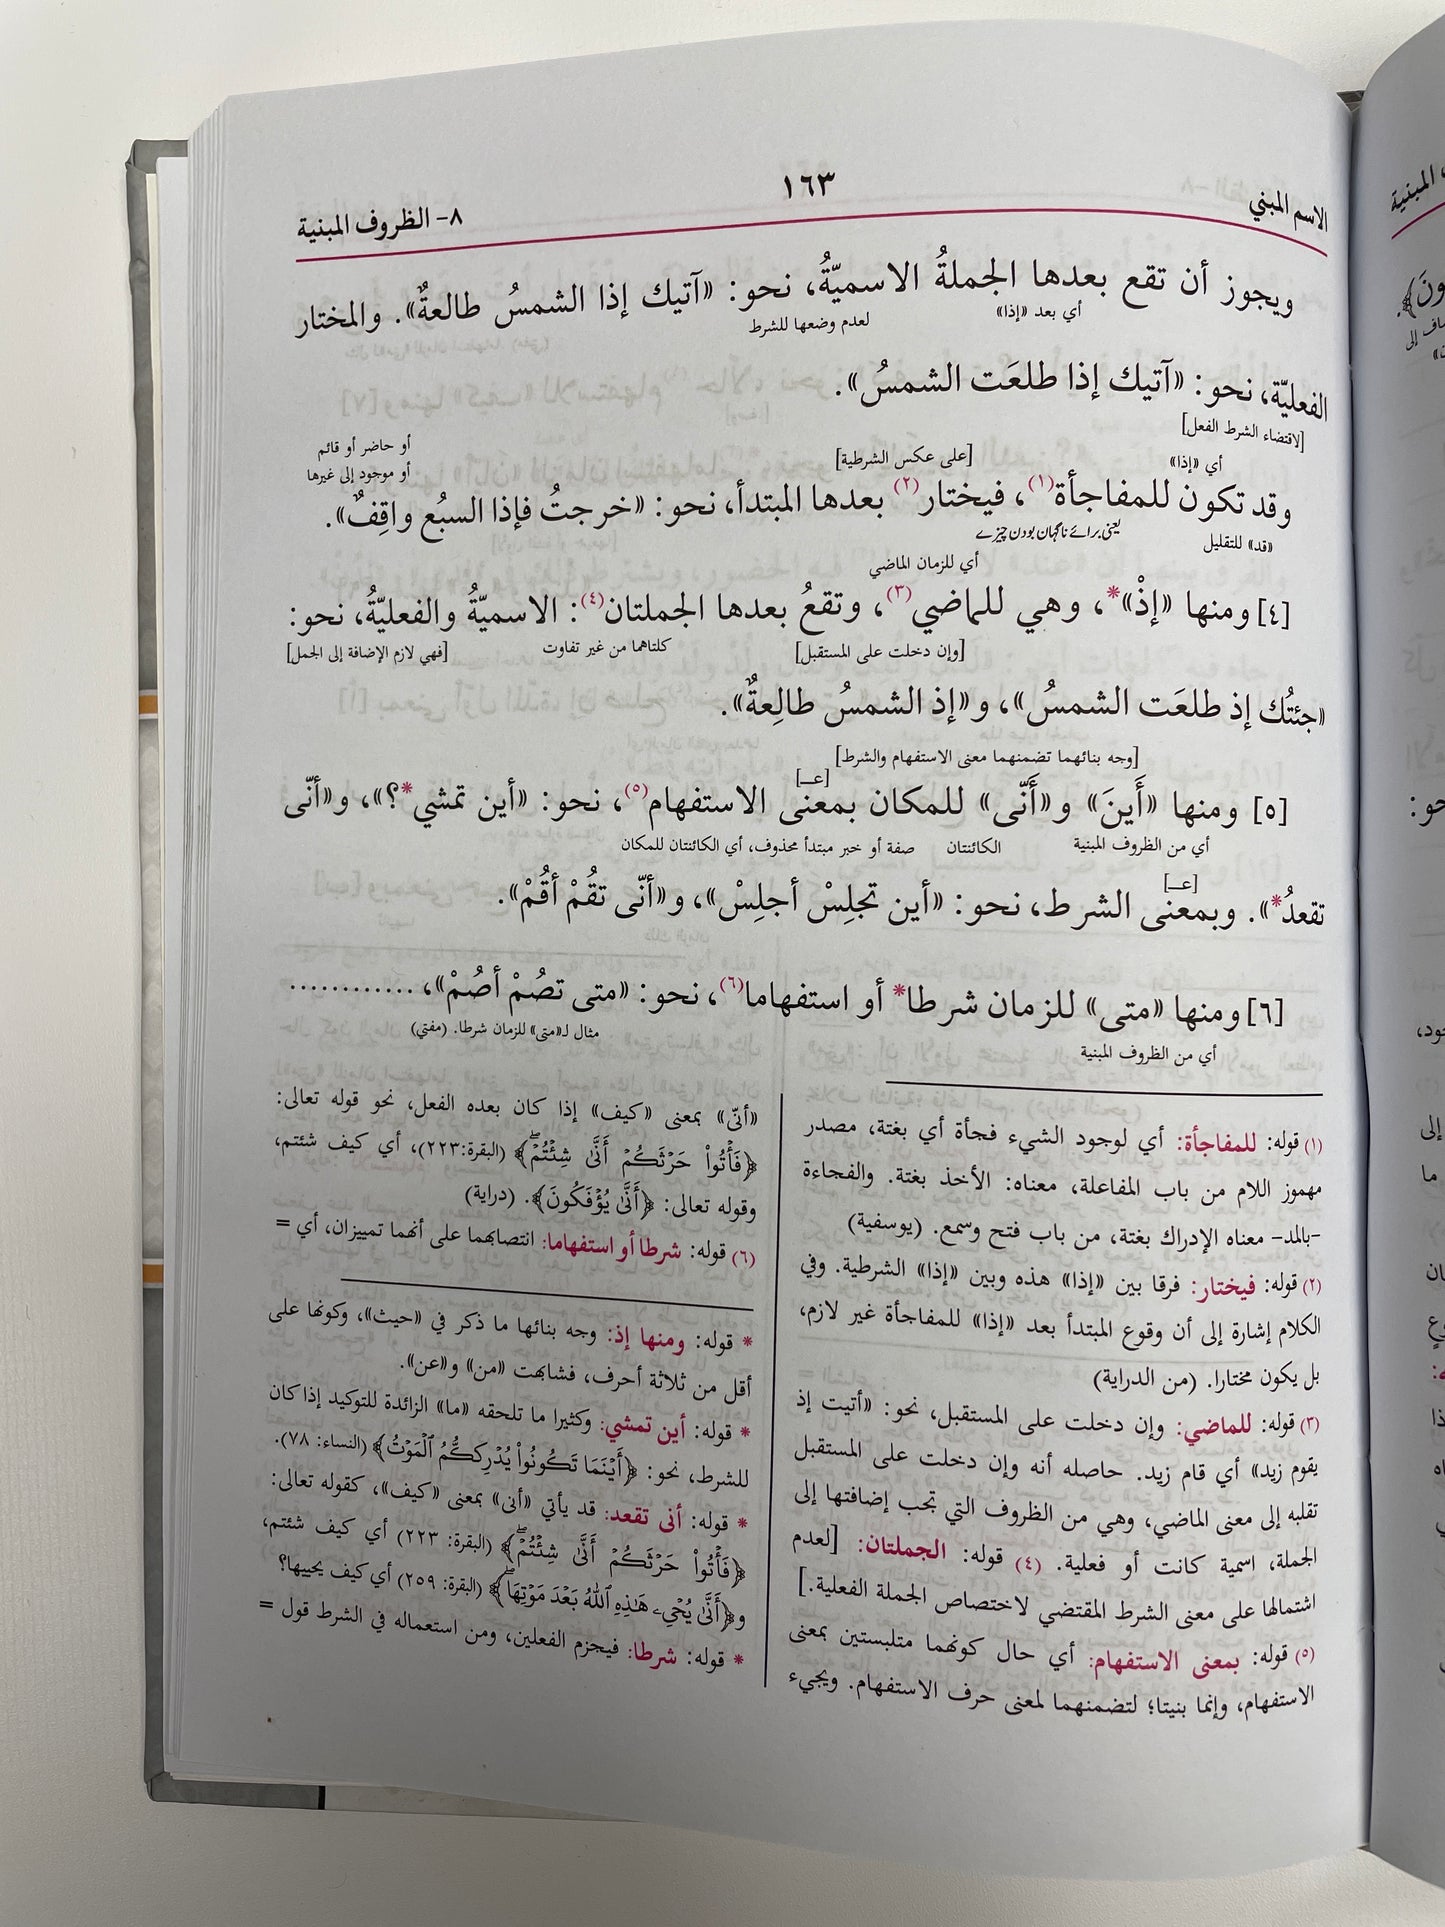 الاسم المبني
١٦٣
٨- الظروف المبنية
ويجوز أن تقع بعدها الجملةُ الاسميّةُ، نحو: «آتيك إذا الشمسُ طالعةٌ». والمختار
أي بعد «إذا»
لعدم وضعها للشرط
الفعليّة، نحو: «آتيك إذا طلعَت الشمسُ».
[لاقتضاء الشرط الفعل]
أي «إذا»
[على عكس الشرطية]
أو حاضر أو قائم
أو موجود إلى غيرها
وقد تكون للمفاجأة(١)، فيختار(٢) بعدها المبتدأ، نحو: «خرجتُ فإذا السبُع واقِفٌ».
«قد» للتقليل
یعنی برائے ناگہان بودن چیزے
أي للزمان الماضي
[٤] ومنها «إذْ»*، وهي للماضي(٣)، وتقعُ بعدها الجملتان(٤): الاسميّةُ والفعليّةُ، نحو:
[وإن دخلت على المستقبل]
كلتاهما من غير تفاوت
[فهي لازم الإضافة إلى الجمل]
«جئتُك إذ طلعَت الشمسُ»، و«إذ الشمسُ طالِعةٌ».
[وجه بنائهما تضمنهما معنى الاستفهام والشرط]
[عـ]
[٥] ومنها «أَينَ» و«أَنّى» للمكان بمعنى الاستفهام(٥)، نحو: «أين تمشي*؟»، و«أنّى
أي من الظروف المبنية
الكائنتان
صفة أو خبر مبتدأ محذوف، أي الكائنتان للمكان
[عـ]
تقعدُ*». وبمعنى الشرط، نحو: «أين تجلِسْ أجلِسْ»، و«أنّى تقُمْ أقُمْ».
[٦] ومنها «متى» للزمان شرطا* أو استفهاما(٦)، نحو: «متى تصُمْ أصُمْ»، ............
أي من الظروف المبنية
مثال لـ«متى» للزمان شرطا. (مفتي)
(١) قوله: للمفاجأة: أي لوجود الشيء فجأة أي بغتة، مصدر
مهموز اللام من باب المفاعلة، معناه: الأخذ بغتة. والفجاءة
-بالمد- معناه الإدراك بغتة، من باب فتح وسمع. (يوسفية)
(٢) قوله: فيختار: فرقا بين «إذا» هذه وبين «إذا» الشرطية. وفي
الكلام إشارة إلى أن وقوع المبتدأ بعد «إذا» للمفاجأة غير لازم،
بل يكون مختارا. (من الدراية)
(٣) قوله: للماضي: وإن دخلت على المستقبل، نحو: «أتيت إذ
يقوم زيد» أي قام زيد. حاصله أنه وإن دخلت على المستقبل
تقلبه إلى معنى الماضي، وهي من الظروف التي تجب إضافتها إلى
الجملة، اسمية كانت أو فعلية. (٤) قوله: الجملتان: [لعدم
اشتمالها على معنى الشرط المقتضي لاختصاص الجملة الفعلية.]
(٥) قوله: بمعنى الاستفهام: أي حال كونهما متلبستين بمعنى
الاستفهام، وإنما بنيتا؛ لتضمنهما لمعنى حرف الاستفهام. ويجيء
«أنّى» بمعنى «كيف» إذا كان بعده الفعل، نحو قوله تعالى:
﴿فَأۡتُواْ حَرۡثَكُمۡ أَنَّىٰ شِئۡتُمۡۖ﴾ (البقرة:٢٢٣)، أي كيف شئتم،
وقوله تعالى: ﴿أَنَّىٰ يُؤۡفَكُونَ﴾. (دراية)
(٦) قوله: شرطا أو استفهاما: انتصابهما على أنهما تمييزان، أي =
* قوله: ومنها إذ: وجه بنائها ما ذكر في «حيث»، وكونها على
أقل من ثلاثة أحرف، فشابهت «من» و«عن».
* قوله: أين تمشي: وكثيرا ما تلحقه «ما» الزائدة للتوكيد إذا كان
للشرط، نحو: ﴿أَيۡنَمَا تَكُونُواْ يُدۡرِككُّمُ ٱلۡمَوۡتُ﴾ (النساء: ٧٨).
* قوله: أنى تقعد: قد يأتي «أنى» بمعنى «كيف»، كقوله تعالى:
﴿فَأۡتُواْ حَرۡثَكُمۡ أَنَّىٰ شِئۡتُمۡۖ﴾ (البقرة: ٢٢٣) أي كيف شئتم،
و﴿أَنَّىٰ يُحۡيِۦ هَٰذِهِ ٱللَّهُ بَعۡدَ مَوۡتِهَاۖ﴾ (البقرة: ٢٥٩) أي كيف يحييها؟
* قوله: شرطا: فيجزم الفعلين، ومن استعماله في الشرط قول =